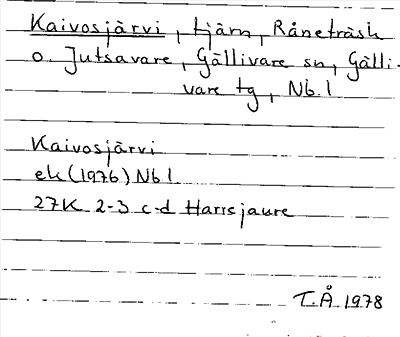 Kaivosjärvi, tjärn, Råneträsk
o. Jutsavare, Gällivare sn, Gälli-
vare tg, Nb.l
Kaivosjärvi
ek (1976) Nb l.
27K 2-3 c-d Harrsjaure
T.Å 1978